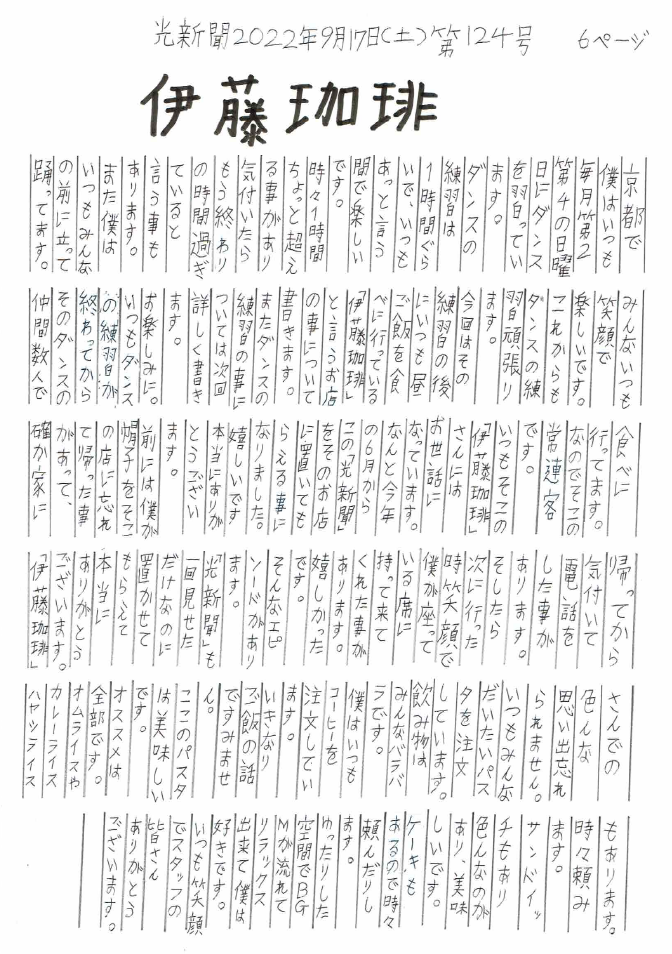 光新聞2022年9月17日(土)第124号 6ページ
伊藤珈琲
京都で
僕はいつも
毎月第2
第4の日曜
日にダンス
を習ってい
ます。
ダンスの
練習は
1時間ぐら
いで、いつも
あっと言う
間で楽しい
です。
時々1時間
ちょっと超え
る事があり
気付いたら
もう終わり
の時間過ぎ
ていると
言う事も
あります。
また僕は
いつもみんな
の前に立って
踊ってます。
みんないつも
笑顔で
楽しいです。
これからも
ダンスの練
習頑張り
ます。
今回はその
練習の後
にいつも昼
ご飯を食
べに行っている
「伊藤珈琲」
と言うお店
の事について
書きます。
またダンスの
練習の事に
ついては次回
詳しく書き
ます。
お楽しみに。
いつもダンス
の練習が
終わってから
そのダンスの
仲間数人で
食べに
行ってます。
なのでそこの
常連客
です。
いつもそこの
「伊藤珈琲」
さんには
お世話に
なっています。
なんと今年
の6月から
この「光新聞」
をそのお店
に置いても
らえる事に
なりました。
嬉しいです
本当にありが
とうござい
ます。
前には僕が
帽子をそこ
の店に忘れ
て帰った事
があって、
確か家に
帰ってから
気付いて
電話を
した事が
あります。
そしたら
次に行った
時笑顔で
僕が座って
いる席に
持って来て
くれた事が
あります。
嬉しかった
です。
そんなエピ
ソードがあり
ます。
「光新聞」も
一回見せた
だけなのに
置かせて
もらえて
本当に
ありがとう
ございます。
「伊藤珈琲」
さんでの
色んな
思い出忘れ
られません。
いつもみんな
だいたいパス
タを注文
しています。
飲み物は
みんなバラバ
ラです。
僕はいつも
コーヒーを
注文してい
ます。
いきなり
ご飯の話
ですみませ
ん。
ここのパスタ
は美味しい
です。
オススメは
全部です。
オムライスや
カレーライス
ハヤシライス
もあります。
時々頼み
ます。
サンドイッ
チもあり
色んなのが
あり、美味
しいです。
ケーキも
あるので時々
頼んだりし
ます。
ゆったりした
空間でBG
Mが流れて
リラックス
出来て僕は
好きです。
いつも笑顔
でスタッフの
皆さん
ありがとう
ございます。